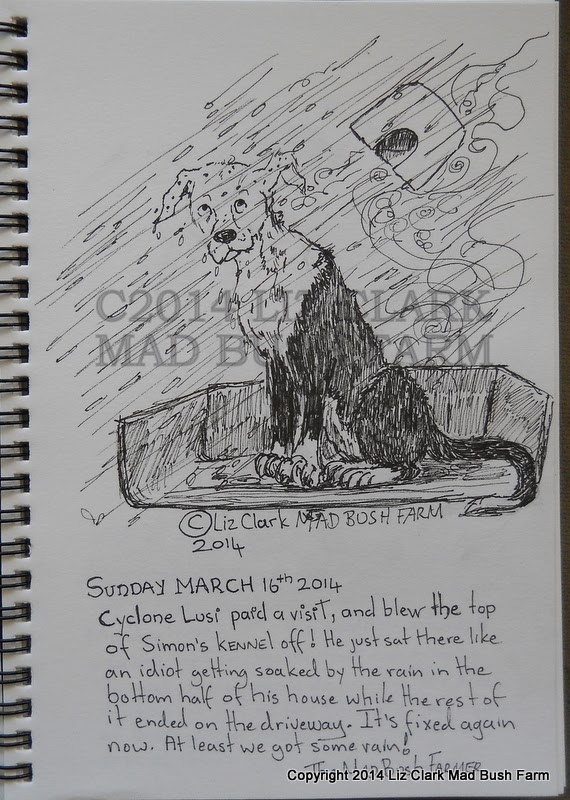 C2014 LIZ CLARK
MAD BUSH FARM
©Liz Clark MAD BUSH FARM
2014
SUNDAY MARCH 16th 2014
Cyclone Lusi paid a visit, and blew the top
of Simon's KENNEL off! He just sat there like
an idiot getting soaked by the rain in the
bottom half of his house while the rest of
it ended on the driveway. It's fixed again
now. At least we got some rain!
The MAD BUSH FARMER
Copyright 2014 Liz Clark Mad Bush Farm